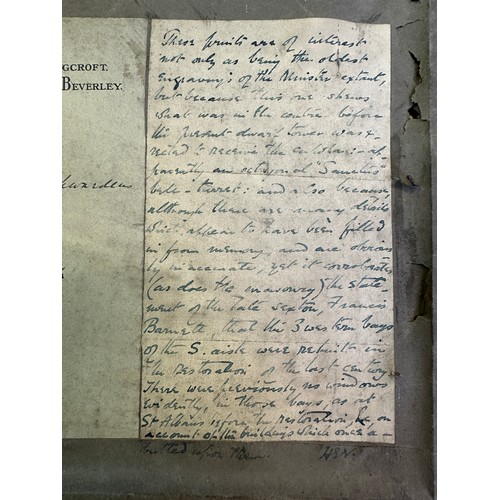 GCROFT.
BEVERLEY.
These prints are of interest
not only as being the oldest
engravings of the Minster extant,
but because this one shews
what was in the centre before
the present dwarf tower was e-
rected to receive the ap-
parently an octagonal "Sanctus"
bell-turret: and also because,
although there are many details
which appear to have been filled
in from memory, and are obvious-
ly inaccurate, yet it corroborates
(as does the masonry) the state-
ment of the late sexton, Francis
Barnett that the 3 western bays
of the S. aisle were rebuilt in
the restoration of the last century.
There were previously no windows
evidently, in those bays, as at
St Albans before the restoration, &c, on
account of the buildings which once a-
butted upon them.